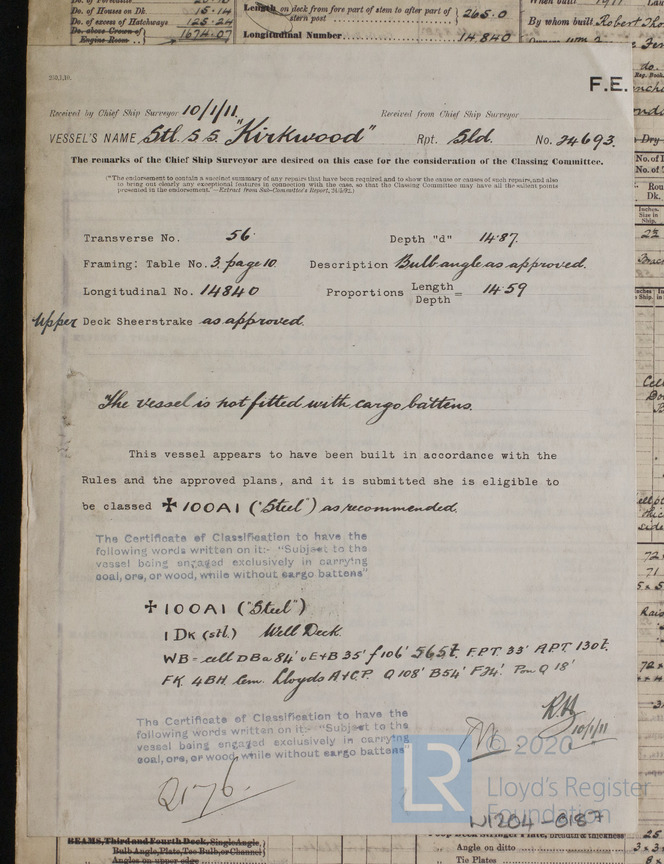 Do. of Houses on Dk. 15.14
Do. of excess of Hatchways 125.24
Do. above Crown of Engine Room 1674.07
Length on deck from fore part of stem to after part of stern post 265.0
Longitudinal Number 14840
By whom built Robert Tho
230,1,10.
F.E.
Received by Chief Ship Surveyor 10/1/11.
Received from Chief Ship Surveyor
VESSEL'S NAME Stl. S.S. "Kirkwood" Rpt. Sld. No. 24693.
The remarks of the Chief Ship Surveyor are desired on this case for the consideration of the Classing Committee.
("The endorsement to contain a succinct summary of any repairs that have been required and to show the cause or causes of such repairs, and also
to bring out clearly any exceptional features in connection with the case, so that the Classing Committee may have all the salient points
presented in the endorsement."—Extract from Sub-Committee's Report,
Transverse No. 56 Depth "d" 14.87.
Framing: Table No. 3. page 10. Description Bulb angle as approved.
Longitudinal No. 14840 Proportions Length/Depth = 14.59
Upper Deck Sheerstrake as approved.
The vessel is not fitted with cargo battens.
This vessel appears to have been built in accordance with the
Rules and the approved plans, and it is submitted she is eligible to
be classed ✠ 100A1 ("Steel") as recommended.
The Certificate of Classification to have the
following words written on it:- "Subject to the
vessel being engaged exclusively in carrying
coal, ore, or wood, while without cargo battens"
✠ 100A1 ("Steel")
1 Dk (stl.) Well Deck.
WB = cell DBa 84' uE+B 35' f 106' 565t. FPT 33' APT 130t.
FK 4BH Cem. Lloyds A+CP. Q 108' B54' F24'. Q 18'
R.H.
10/1/11
The Certificate of Classification to have the
following words written on it:- "Subject to the
vessel being engaged exclusively in carrying
coal, ore, or wood, while without cargo battens"
LR
© 2020
Lloyd's Register
Foundation
W1204-0187
BEAMS, Third and Fourth Deck, Single Angle,
Bulb Angle, Plate, Tee Bulb, or Channel
Angles on upper edge
Angle on ditto
Tie Plates